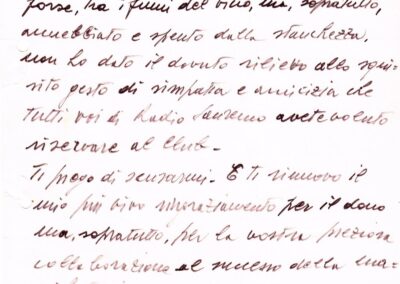 forse, tra i fumi del vino, ma, sopratutto,
annebbiato e spento dalla stanchezza,
non ho dato il dovuto rilievo allo squi-
sito gesto di simpatia e amicizia che
tutti voi di Radio Sanremo avete voluto
riservare al Club.
Ti prego di scusarmi. E ti rinnovo il
mio più vivo ringraziamento per il dono
ma, sopratutto, per la vostra preziosa
collaborazione al successo della ma-